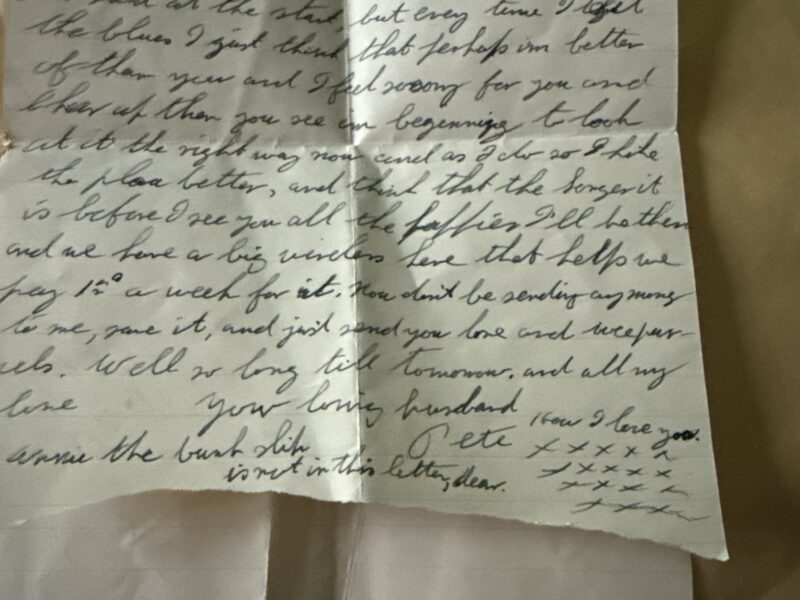 at the start, but every time I feel
the blues I just think that perhaps im better
of than you and I feel so sorry for you and
cheer up then you see im beginning to look
at it the right way now and as I do so I like
the place better, and think that the longer it
is before I see you all the happier I'll be then
and we have a big wireless here that helps we
pay 1/- a week for it. Now dont be sending any money
to me, save it, and just send you love and
Well so long till tomorrow. and all my
love your loving husband
Pete How I love you.
x x x x x
x x x x x
x x x x x
x x x x
annie the bank slip
is not in this letter, dear.